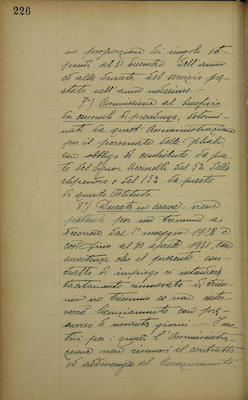 226
in proporzione dei singoli sti-
pendi al 31 dicembre dell'anno
ed alla durata del servizio pre-
stato nell'anno medesimo.
7°) Ammissione al beneficio
di previdenza, determi-
nati da quest'Amministrazione
per il personale delle filiali
con obbligo di contributo da par-
te del Signor del 5% dello
stipendio e del 15% da parte
di questo Istituto.
8°) Durata in carica: viene
per un triennio a
decorrere dal 1° maggio 1928 e
così fino al 30 aprile 1931, con
avvertenza che il presente con-
tratto di impiego si intenderà
tacitamente rinnovato di trien-
nio in triennio se non inter-
verrà licenziamento con pre-
avviso di novanta giorni. - I mo-
tivi per i quali l'Amministra-
zione non rinnovi il contratto
od addivenga al licenziamento